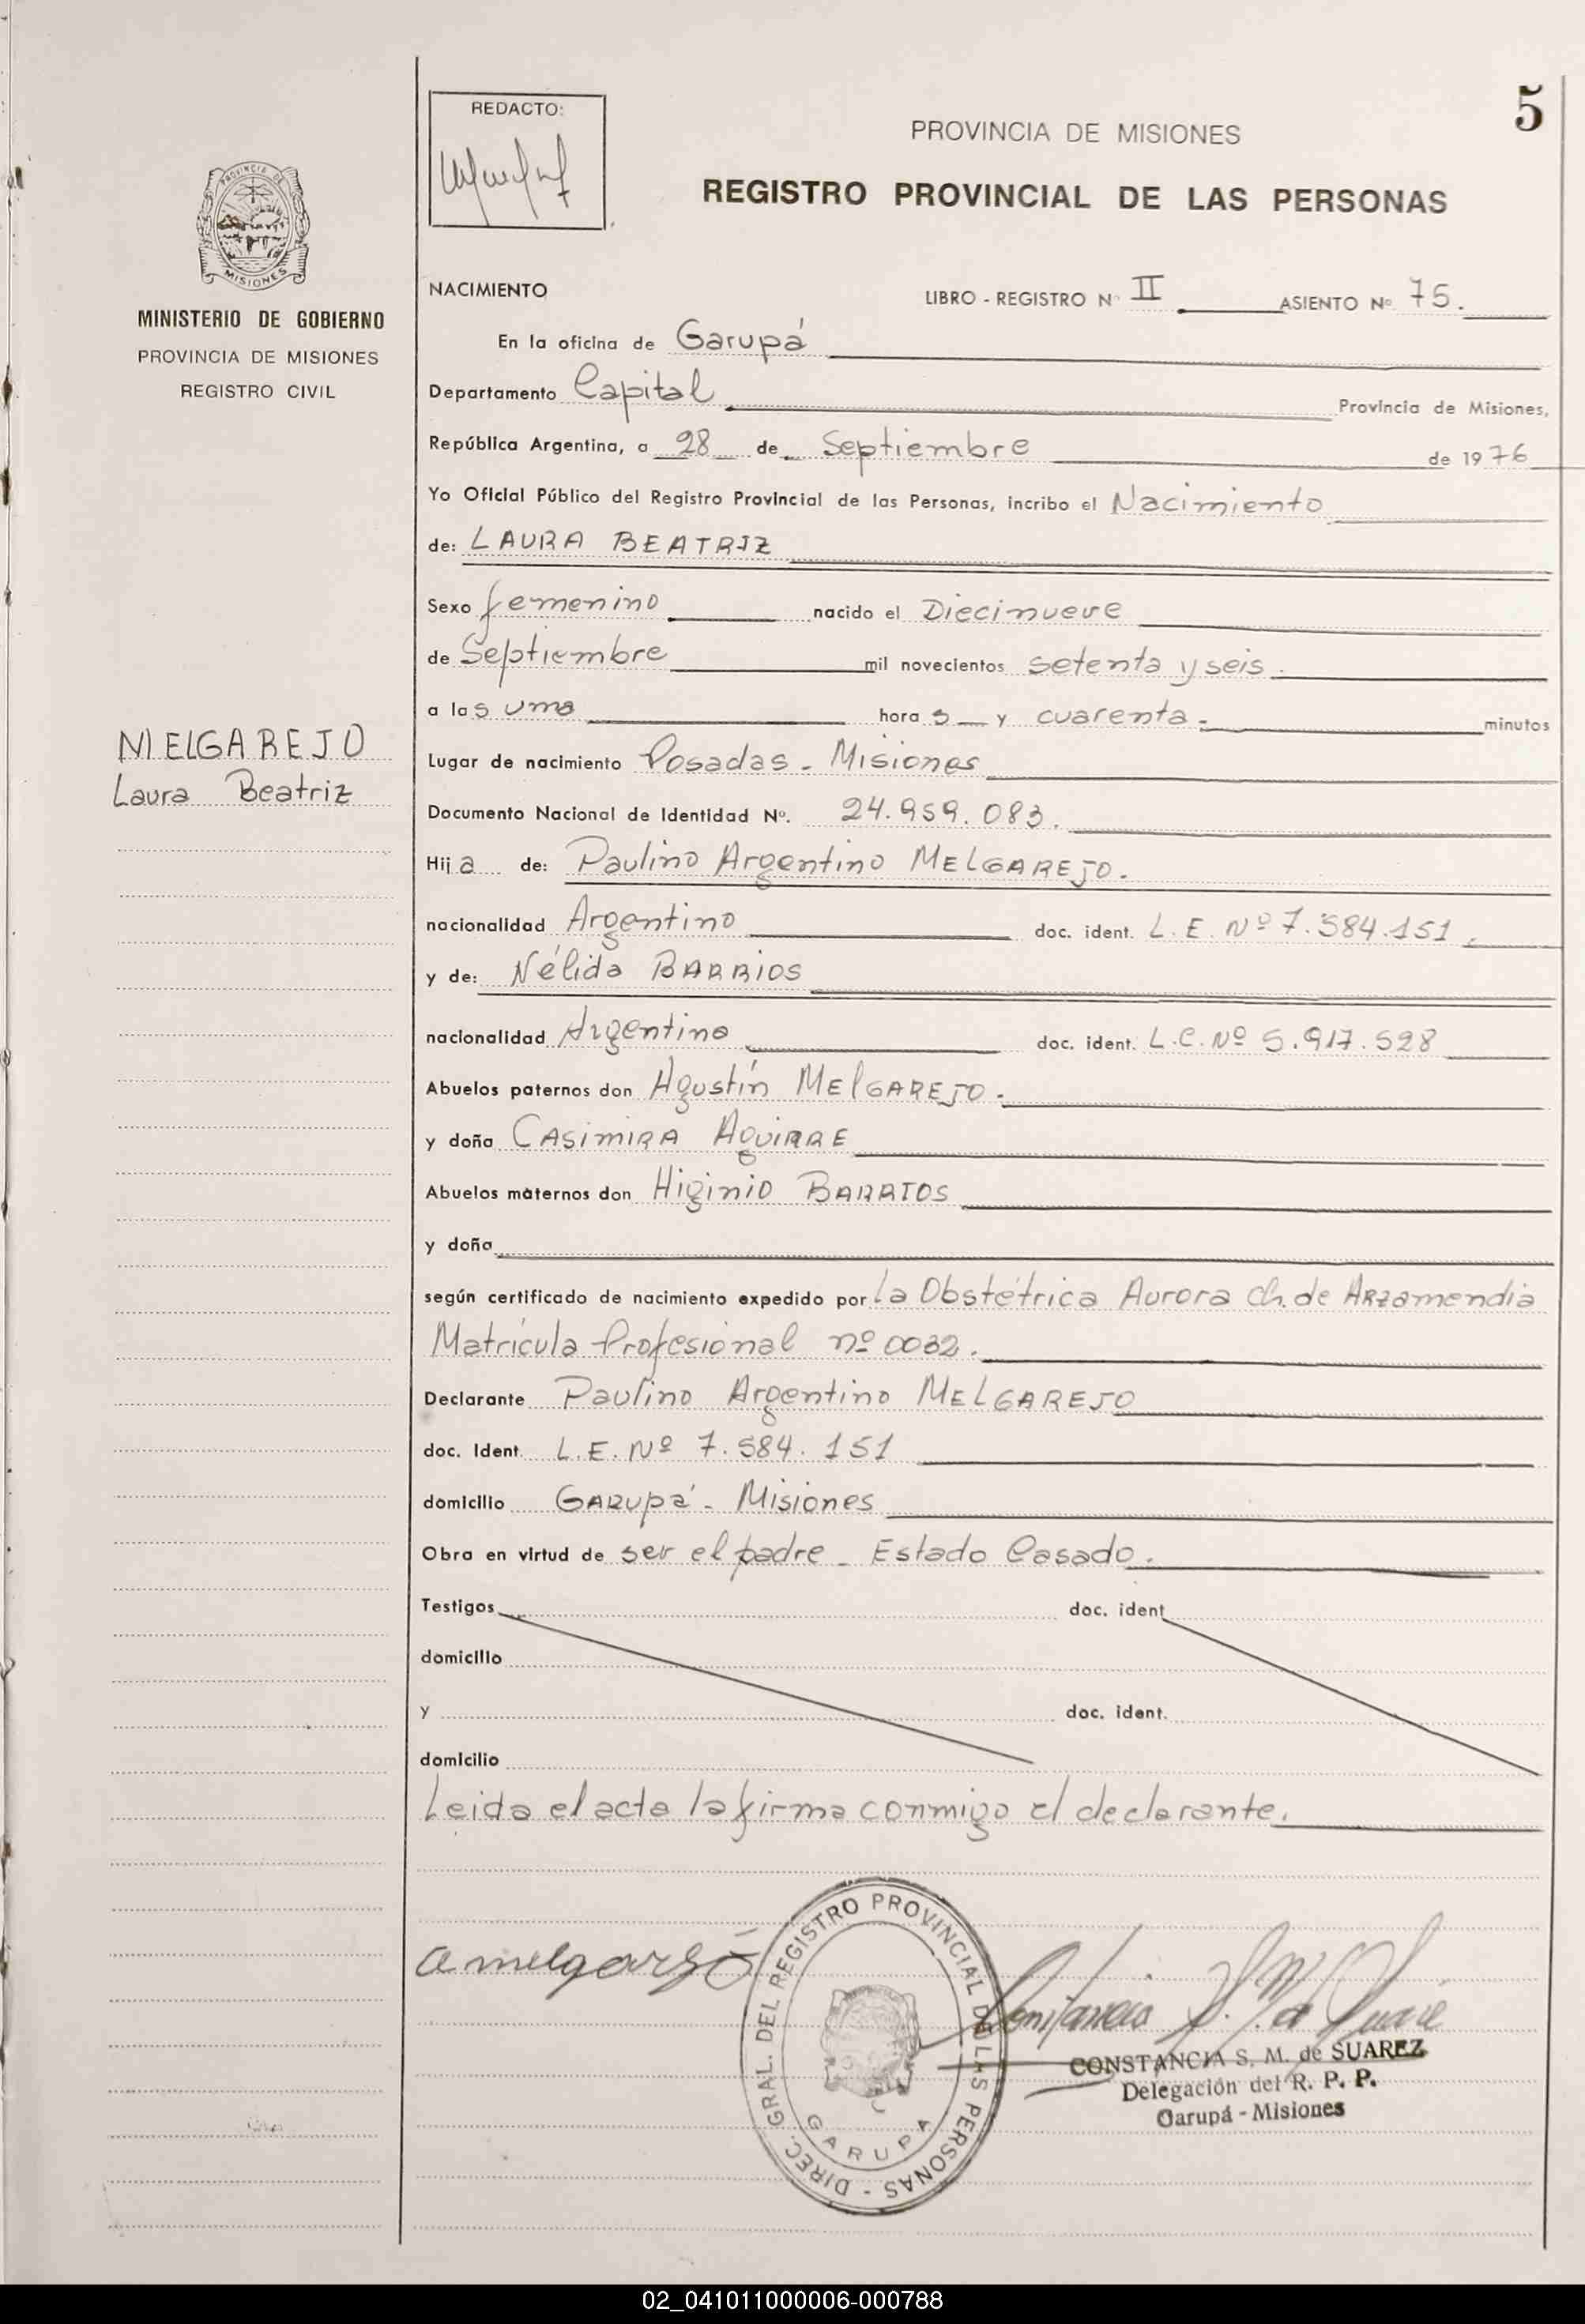 5
REDACTO:
PROVINCIA DE MISIONES
REGISTRO PROVINCIAL DE LAS PERSONAS
PROVINCIA DE
MISIONES
MINISTERIO DE GOBIERNO
PROVINCIA DE MISIONES
REGISTRO CIVIL
MELGAREJO
Laura Beatriz
NACIMIENTO LIBRO - REGISTRO Nº II ASIENTO Nº 75.
En la oficina de Garupá
Departamento Capital Provincia de Misiones,
República Argentina, a 28 de Septiembre de 1976
Yo Oficial Público del Registro Provincial de las Personas, incribo el Nacimiento
de: LAURA BEATRIZ
Sexo femenino nacido el Diecinueve
de Septiembre mil novecientos setenta y seis.
a las una hora s y cuarenta. minutos
Lugar de nacimiento Posadas - Misiones
Documento Nacional de Identidad Nº. 24.959.083.
Hija de: Paulino Argentino MELGAREJO.
nacionalidad Argentino doc. ident. L.E. Nº 7.584.151.
y de: Nélida BARRIOS
nacionalidad Argentina doc. ident. L.C. Nº 5.917.528
Abuelos paternos don Agustín MELGAREJO.
y doña CASIMIRA AGUIRRE
Abuelos maternos don Higinio BARRIOS
y doña
según certificado de nacimiento expedido por la Obstétrica Aurora Ch. de Arzamendia
Matrícula Profesional nº 0032.
Declarante Paulino Argentino MELGAREJO
doc. Ident. L.E. Nº 7.584.151
domicilio GARUPá - Misiones
Obra en virtud de ser el padre - Estado Casado.
Testigos doc. ident
domicilio
y doc. ident.
domicilio
Leida el acta la firma conmigo el declarante.
DIREC. GRAL. DEL REGISTRO PROVINCIAL DE LAS PERSONAS -
GARUPA
CONSTANCIA S. M. de SUAREZ
Delegación del R. P. P.
Garupá - Misiones
02_041011000006-000788